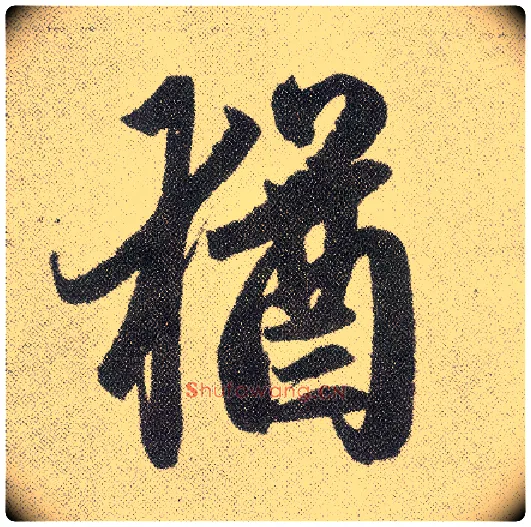 猶
Shufawang.cn